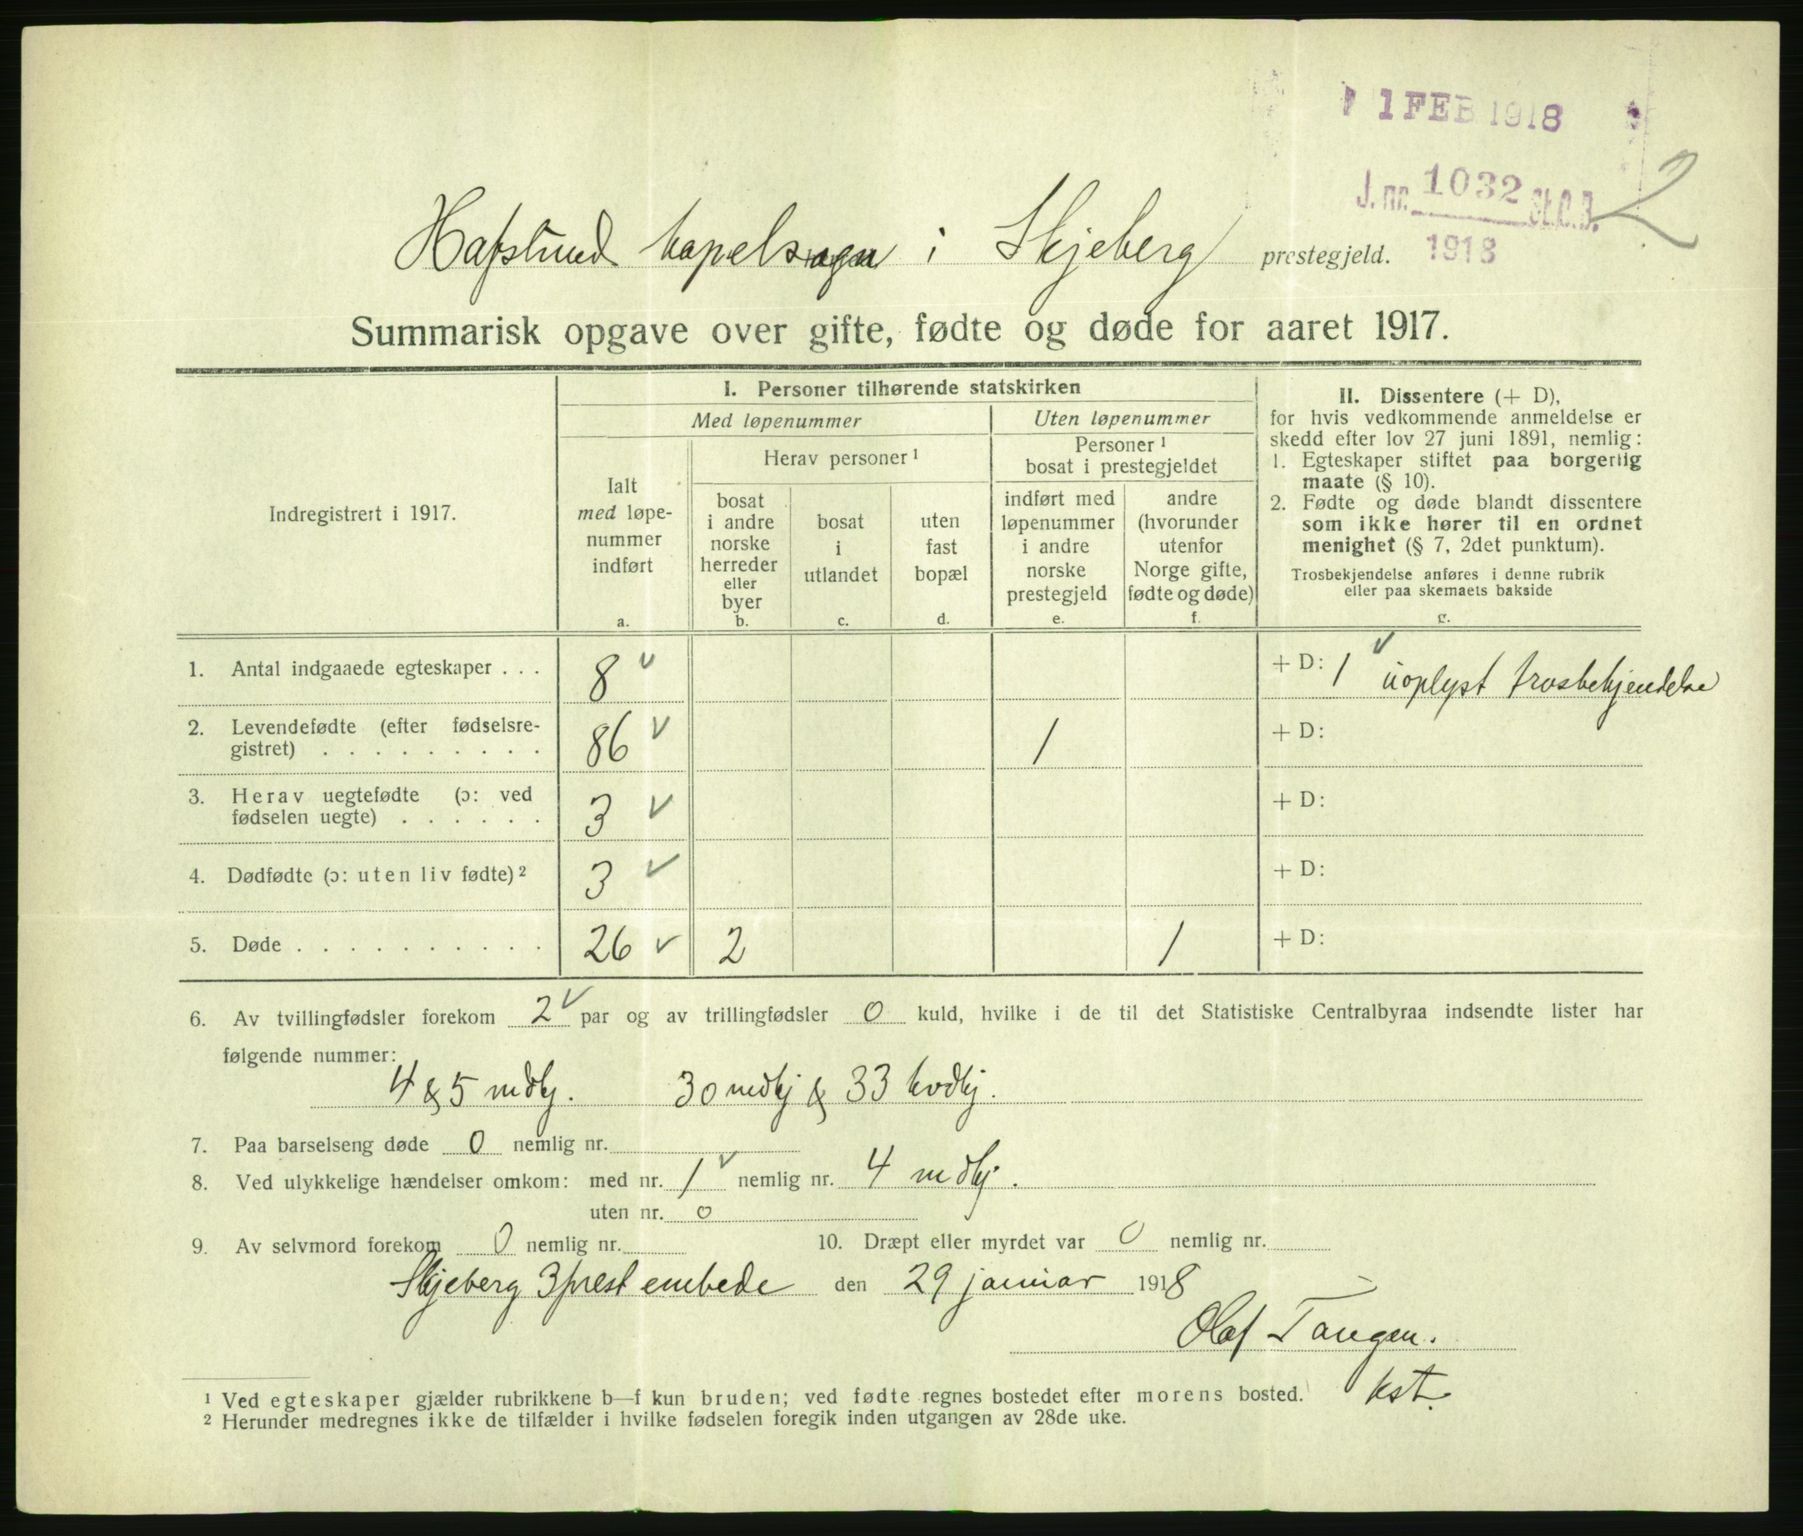 11 FEB 1918
J. nr. 1032 St.C.B.
1918
2
Hafslund kapelsogn i Skjeberg prestegjeld.
Summarisk opgave over gifte, fødte og døde for aaret 1917.
Indregistrert i 1917.
I. Personer tilhørende statskirken
Med løpenummer
Uten løpenummer
Herav personer ¹
Personer ¹
bosat i prestegjeldet
Ialt
med løpe-
nummer
indført
a.
bosat
i andre
norske
herreder
eller
byer
b.
bosat
i
utlandet
c.
uten
fast
bopæl
d.
indført med
løpenummer
i andre
norske
prestegjeld
e.
andre
(hvorunder
utenfor
Norge gifte,
fødte og døde)
f.
II. Dissentere (+ D),
for hvis vedkommende anmeldelse er
skedd efter lov 27 juni 1891, nemlig:
1. Egteskaper stiftet paa borgerlig
maate (§ 10).
2. Fødte og døde blandt dissentere
som ikke hører til en ordnet
menighet (§ 7, 2det punktum).
Trosbekjendelse anføres i denne rubrik
eller paa skemaets bakside
g.
1. Antal indgaaede egteskaper . . . 8 ✓ + D: 1 ✓ uoplyst trosbekjendelse
2. Levendefødte (efter fødselsre-
gistret) . . . . . . . . . 86 ✓ 1 + D:
3. Herav uegtefødte (ɔ: ved
fødselen uegte) . . . . . . 3 ✓ + D:
4. Dødfødte (ɔ: uten liv fødte) ² 3 ✓ + D:
5. Døde . . . . . . . . . . 26 ✓ 2 1 + D:
6. Av tvillingfødsler forekom 2 ✓ par og av trillingfødsler 0 kuld, hvilke i de til det Statistiske Centralbyraa indsendte lister har
følgende nummer:
4 & 5 mdkj. 30 mdkj & 33 kvdkj.
7. Paa barselseng døde 0 nemlig nr.
8. Ved ulykkelige hændelser omkom: med nr. 1 ✓ nemlig nr. 4 mdkj.
uten nr. 0
9. Av selvmord forekom 0 nemlig nr. 10. Dræpt eller myrdet var 0 nemlig nr.
Skjeberg 3 prest embede den 29 januar 1918
Olaf Tangen.
kst.
¹ Ved egteskaper gjælder rubrikkene b—f kun bruden; ved fødte regnes bostedet efter morens bosted.
² Herunder medregnes ikke de tilfælder i hvilke fødselen foregik inden utgangen av 28de uke.